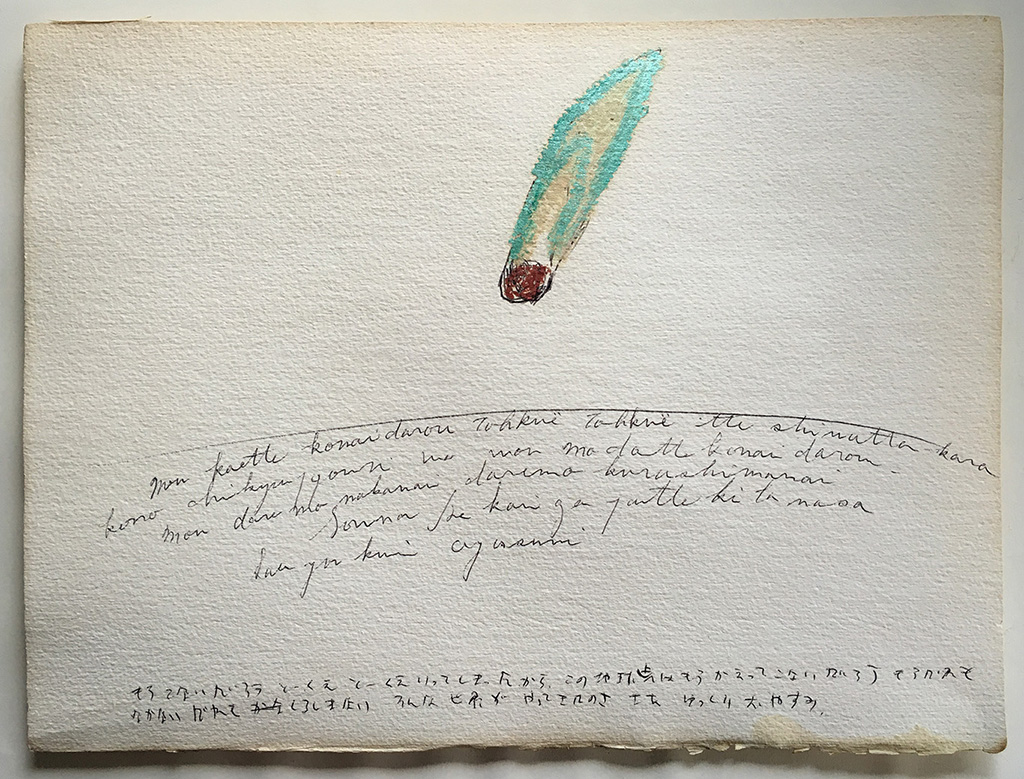 mou kaette konaidarou tohkuë tohkuë itte shimatta kara
kono chikyu wa mou modatte konai darou
mou daremo nakanai daremo kurushimanai
Sonna sekai ga yatte kita nasa
saa yukkuri oyasumi
もうこないだろう とーくえ とーくえ いってしまったから この地球はもうかえってこないだろう もうだれも
なかない だれも くるしまない そんな世界が やってきたのさ さあ ゆっくり おやすみ.